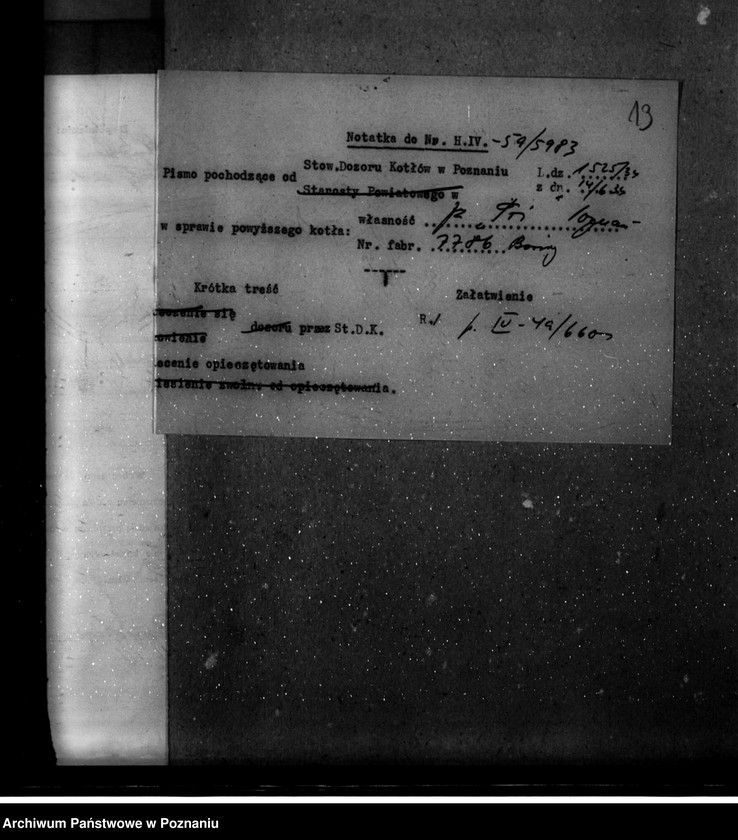 13
Notatka do Nr. H.IV.-5a/5983
Pismo pochodzące od Stow.Dozoru Kotłów w Poznaniu L.dz. 1525/34
Starosty Powiatowego w z dn. 14/6 34
w sprawie powyższego kotła: własność p.
Nr. fabr. 7786
Krótka treść
Załatwienie
czenie się
dozoru przez St.D.K.
R./ p. IV-4a/660
owienie
ecenie opieczętowania
iesienie zwoln. od opieczętowania.
Archiwum Państwowe w Poznaniu